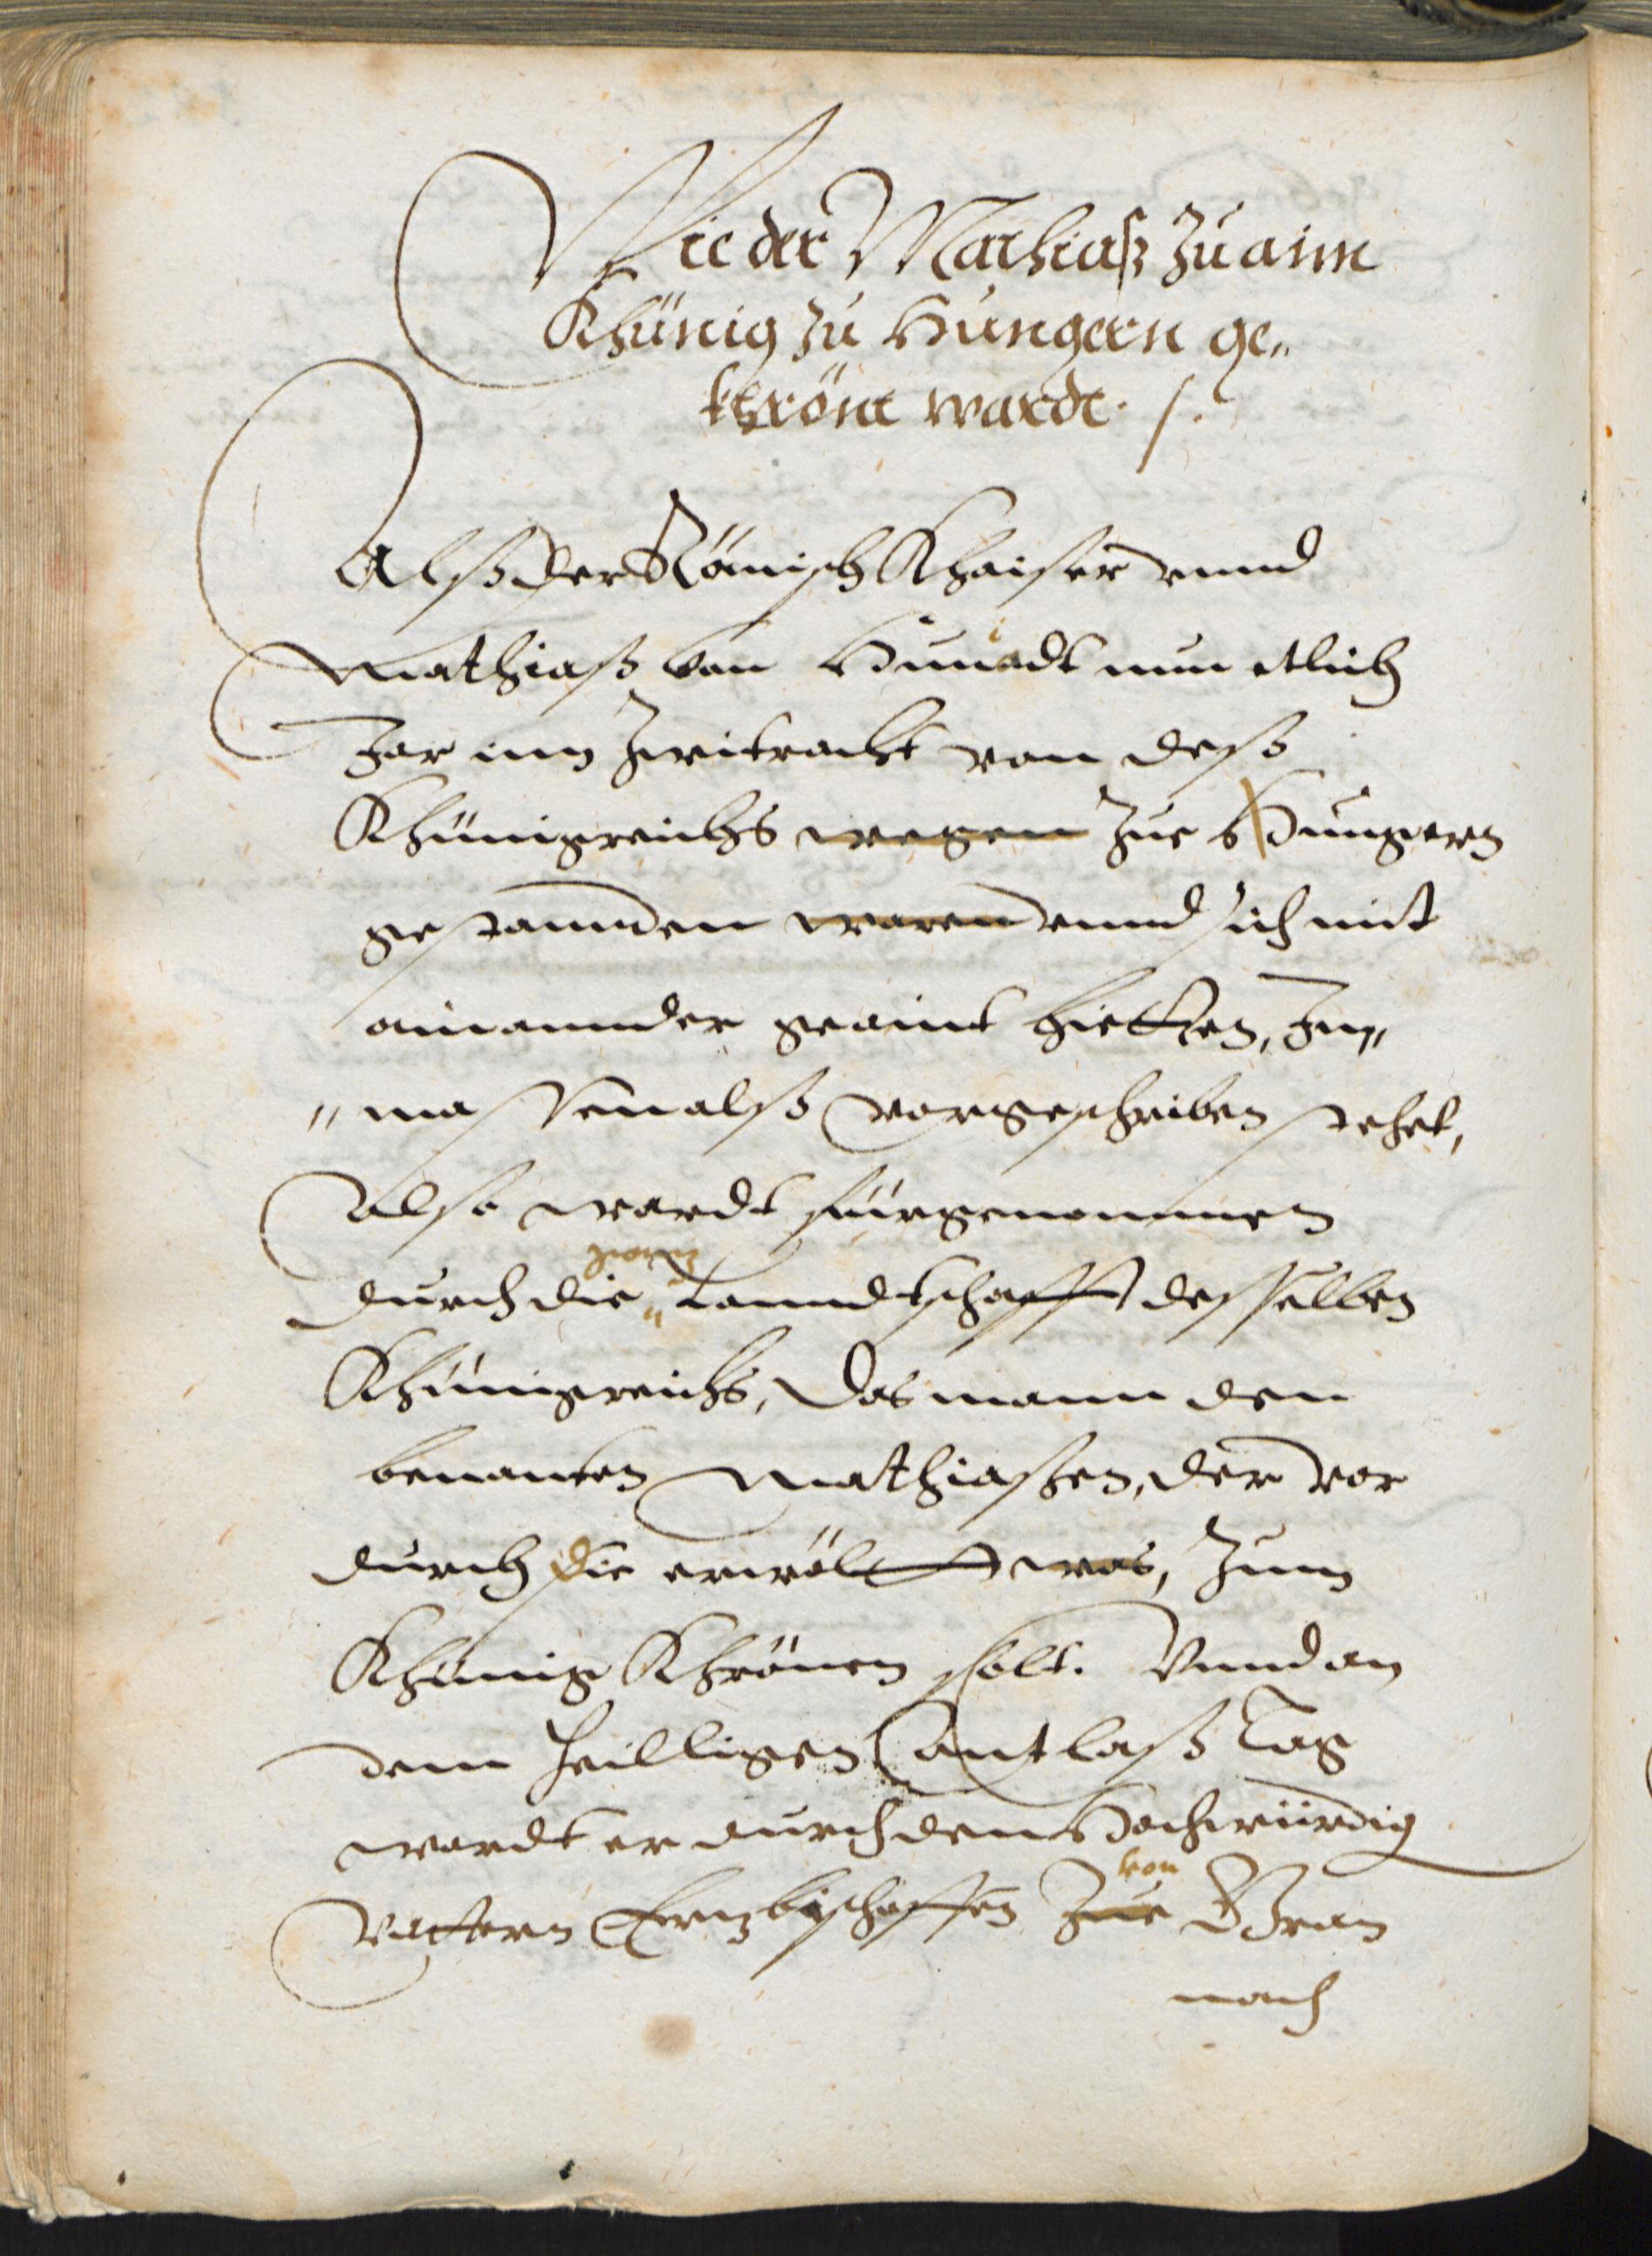 Wie der Mathiaß zu aim
Khünig zu Hungern ge„
khrönt warde. /.
Alß der Römisch Khaiser vnnd
Mathiaß von Huniadt nun etlich
Jar inn Zwitracht von deß
Khünigreichs wegen zue Hungern
gestannden waren vnnd sich mit
ainannder geaint hietten, Jn„
„massen alß vorgeschriben stehet,
Also wardt fürgenommen
durch die „ Lanndtschafft desselben
Khünigreichs, das mann den
benanten Mathiaßen, der vor
durch die erwölt was, zum
Khünig Khrönen solt. Vnnd an
dem heilligen Antlaß tag
wardt er durch den Hochwürdig
von
Vattern Ertzbischoffen zue Gran
nach